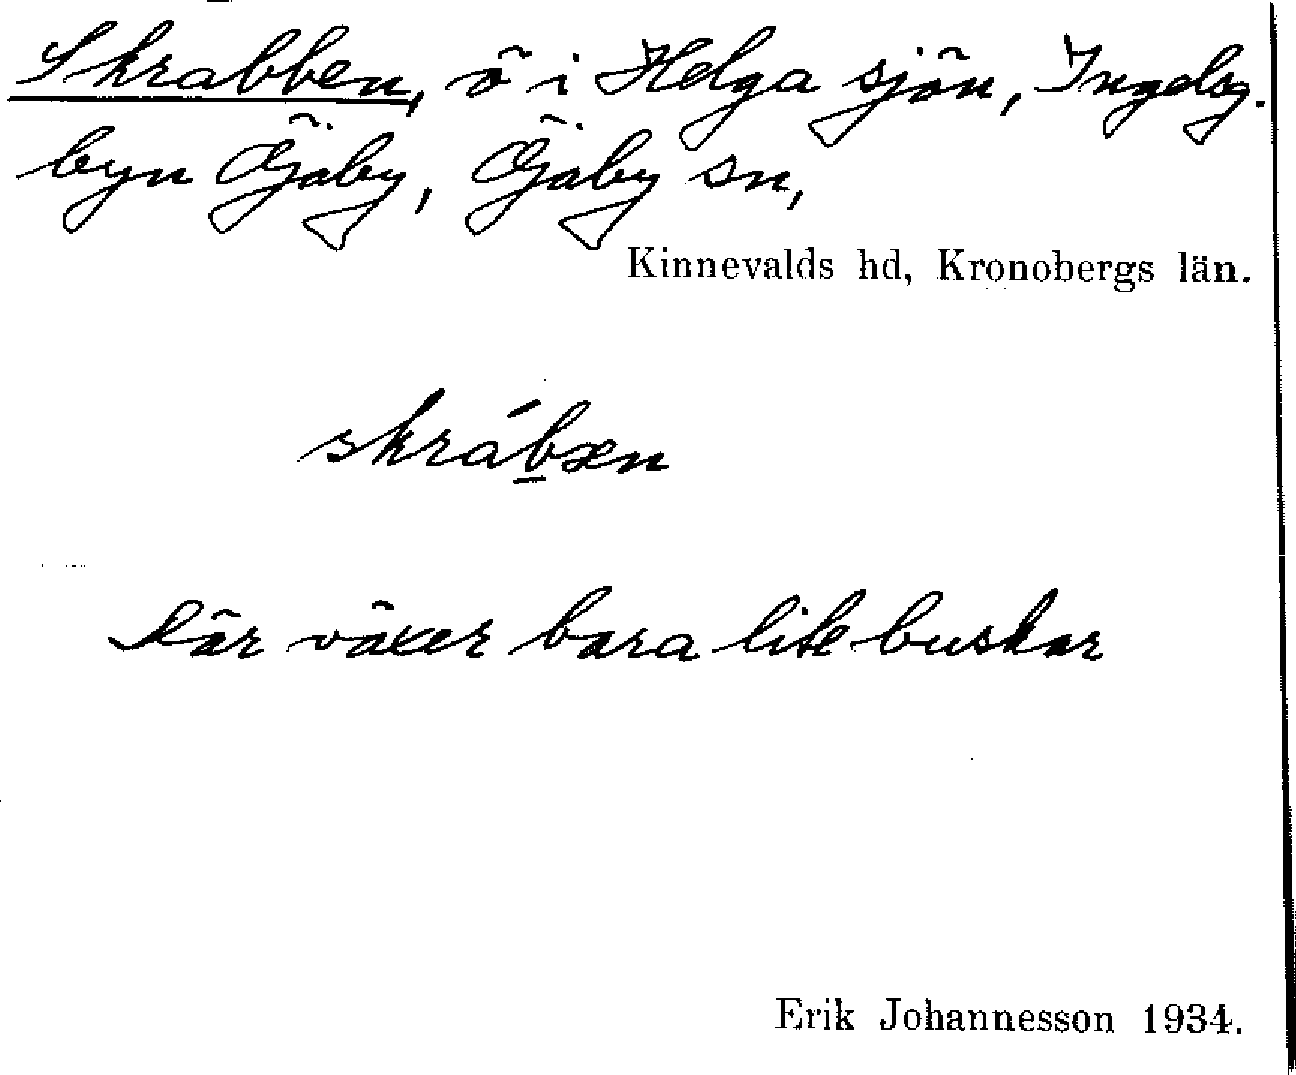 Skrabben, ö i Helga sjön,
byn Öjaby, Öjaby sn,
Kinnevalds hd, Kronobergs län.
skrábxn
här växer bara lite buskar
Erik Johannesson 1934.